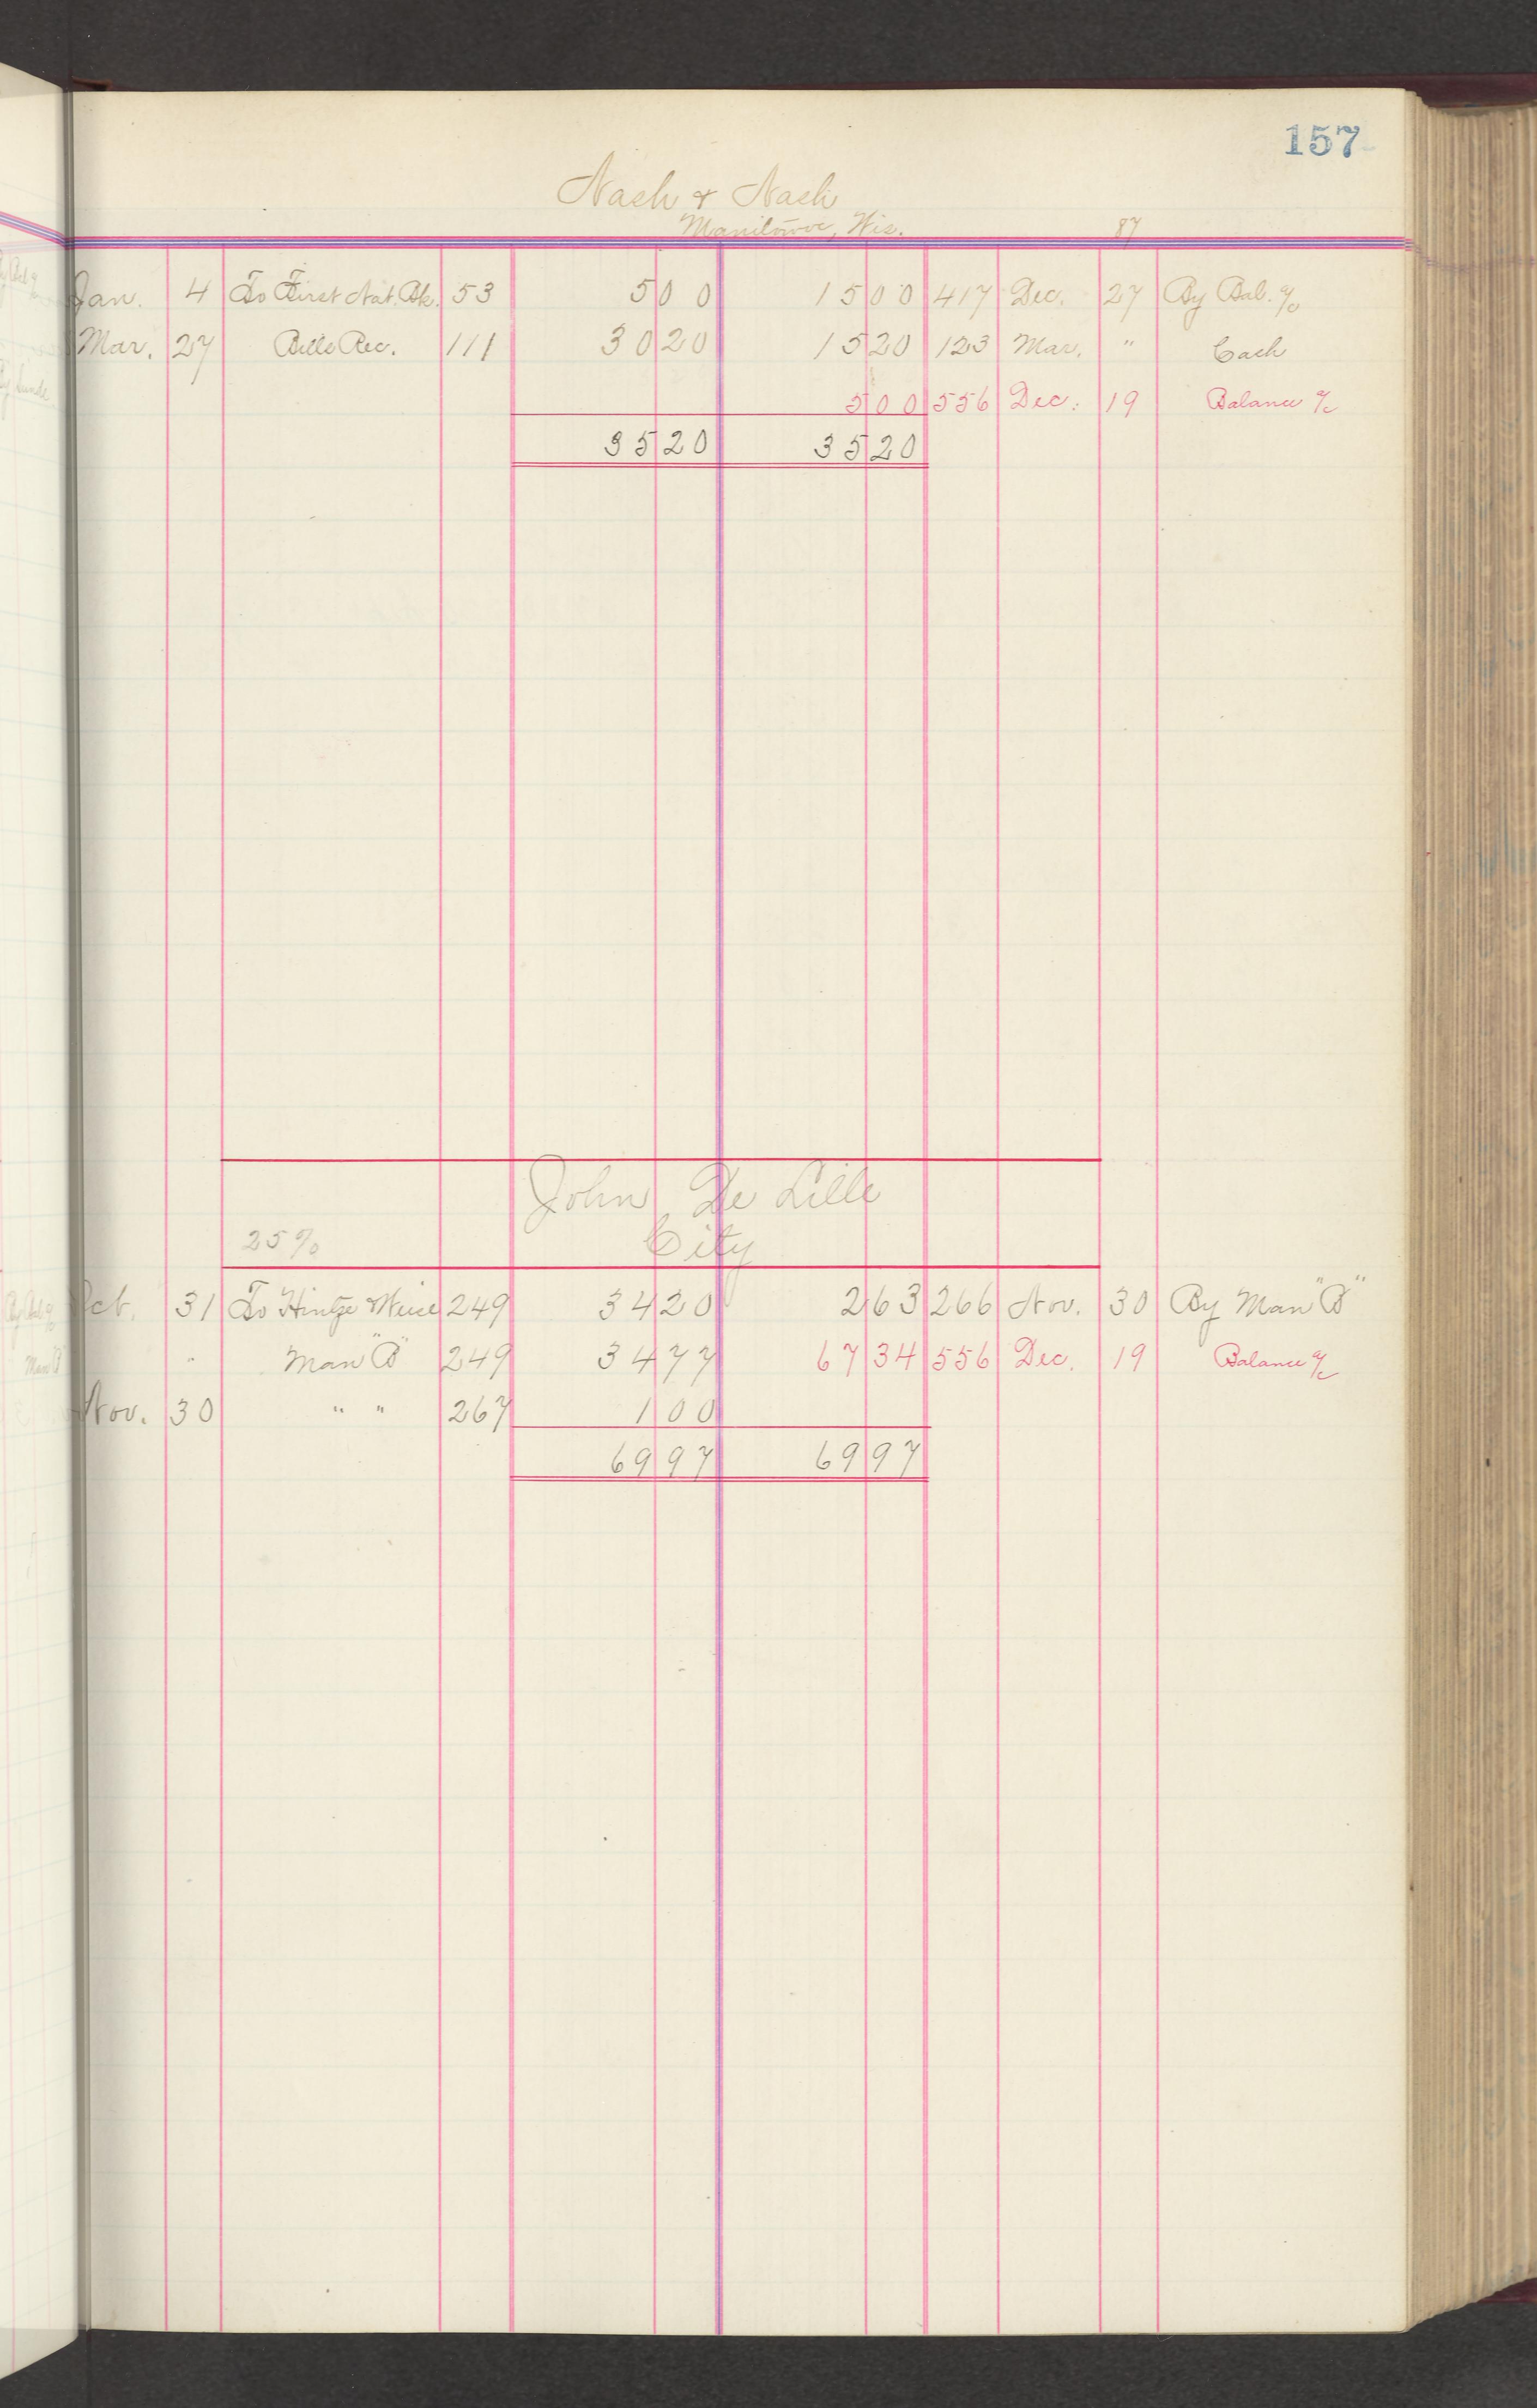 157
Nash & Nash
Manitowoc, Wis. 87
Jan. 4 To First Nat. Bk. 53 5 00 15 00 417 Dec. 27 By Bal. a/c
Mar. 27 Bills Rec. 111 30 20 15 20 123 Mar. " Cash
5 00 556 Dec. 19 Balance a/c
35 20 35 20
John De Lille
25% City
Oct. 31 To Hintze & Weise 249 34 20 2 63 266 Nov. 30 By Man "B"
" Man "B" 249 34 77 67 34 556 Dec. 19 Balance a/c
Nov. 30 " " 267 1 00
69 97 69 97